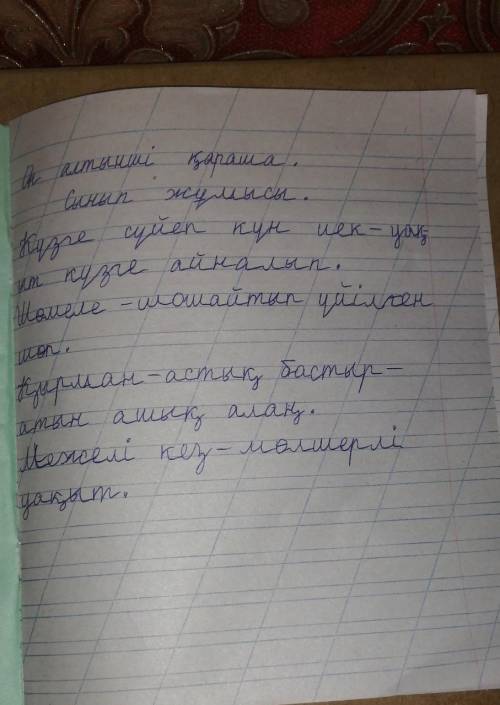 Он алтынші қараша.
Сынып жұмысы.
Күзге сүйеп күн иек-уақ
ыт күзге айналып.
Шөмеле-шошайтып үйілген
шөп.
Қырман-астық бастыр-
атын ашық алаң.
Межелі кез-мөлшерлі
уақыт.